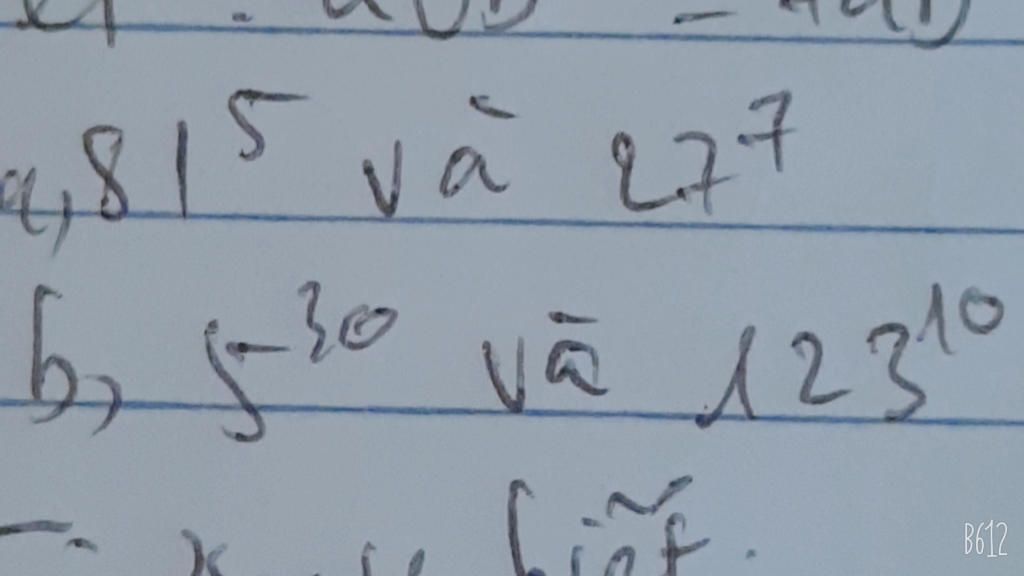 a, 81⁵ và 27⁷
b, 5³⁰ và 123¹⁰
biết.
B612